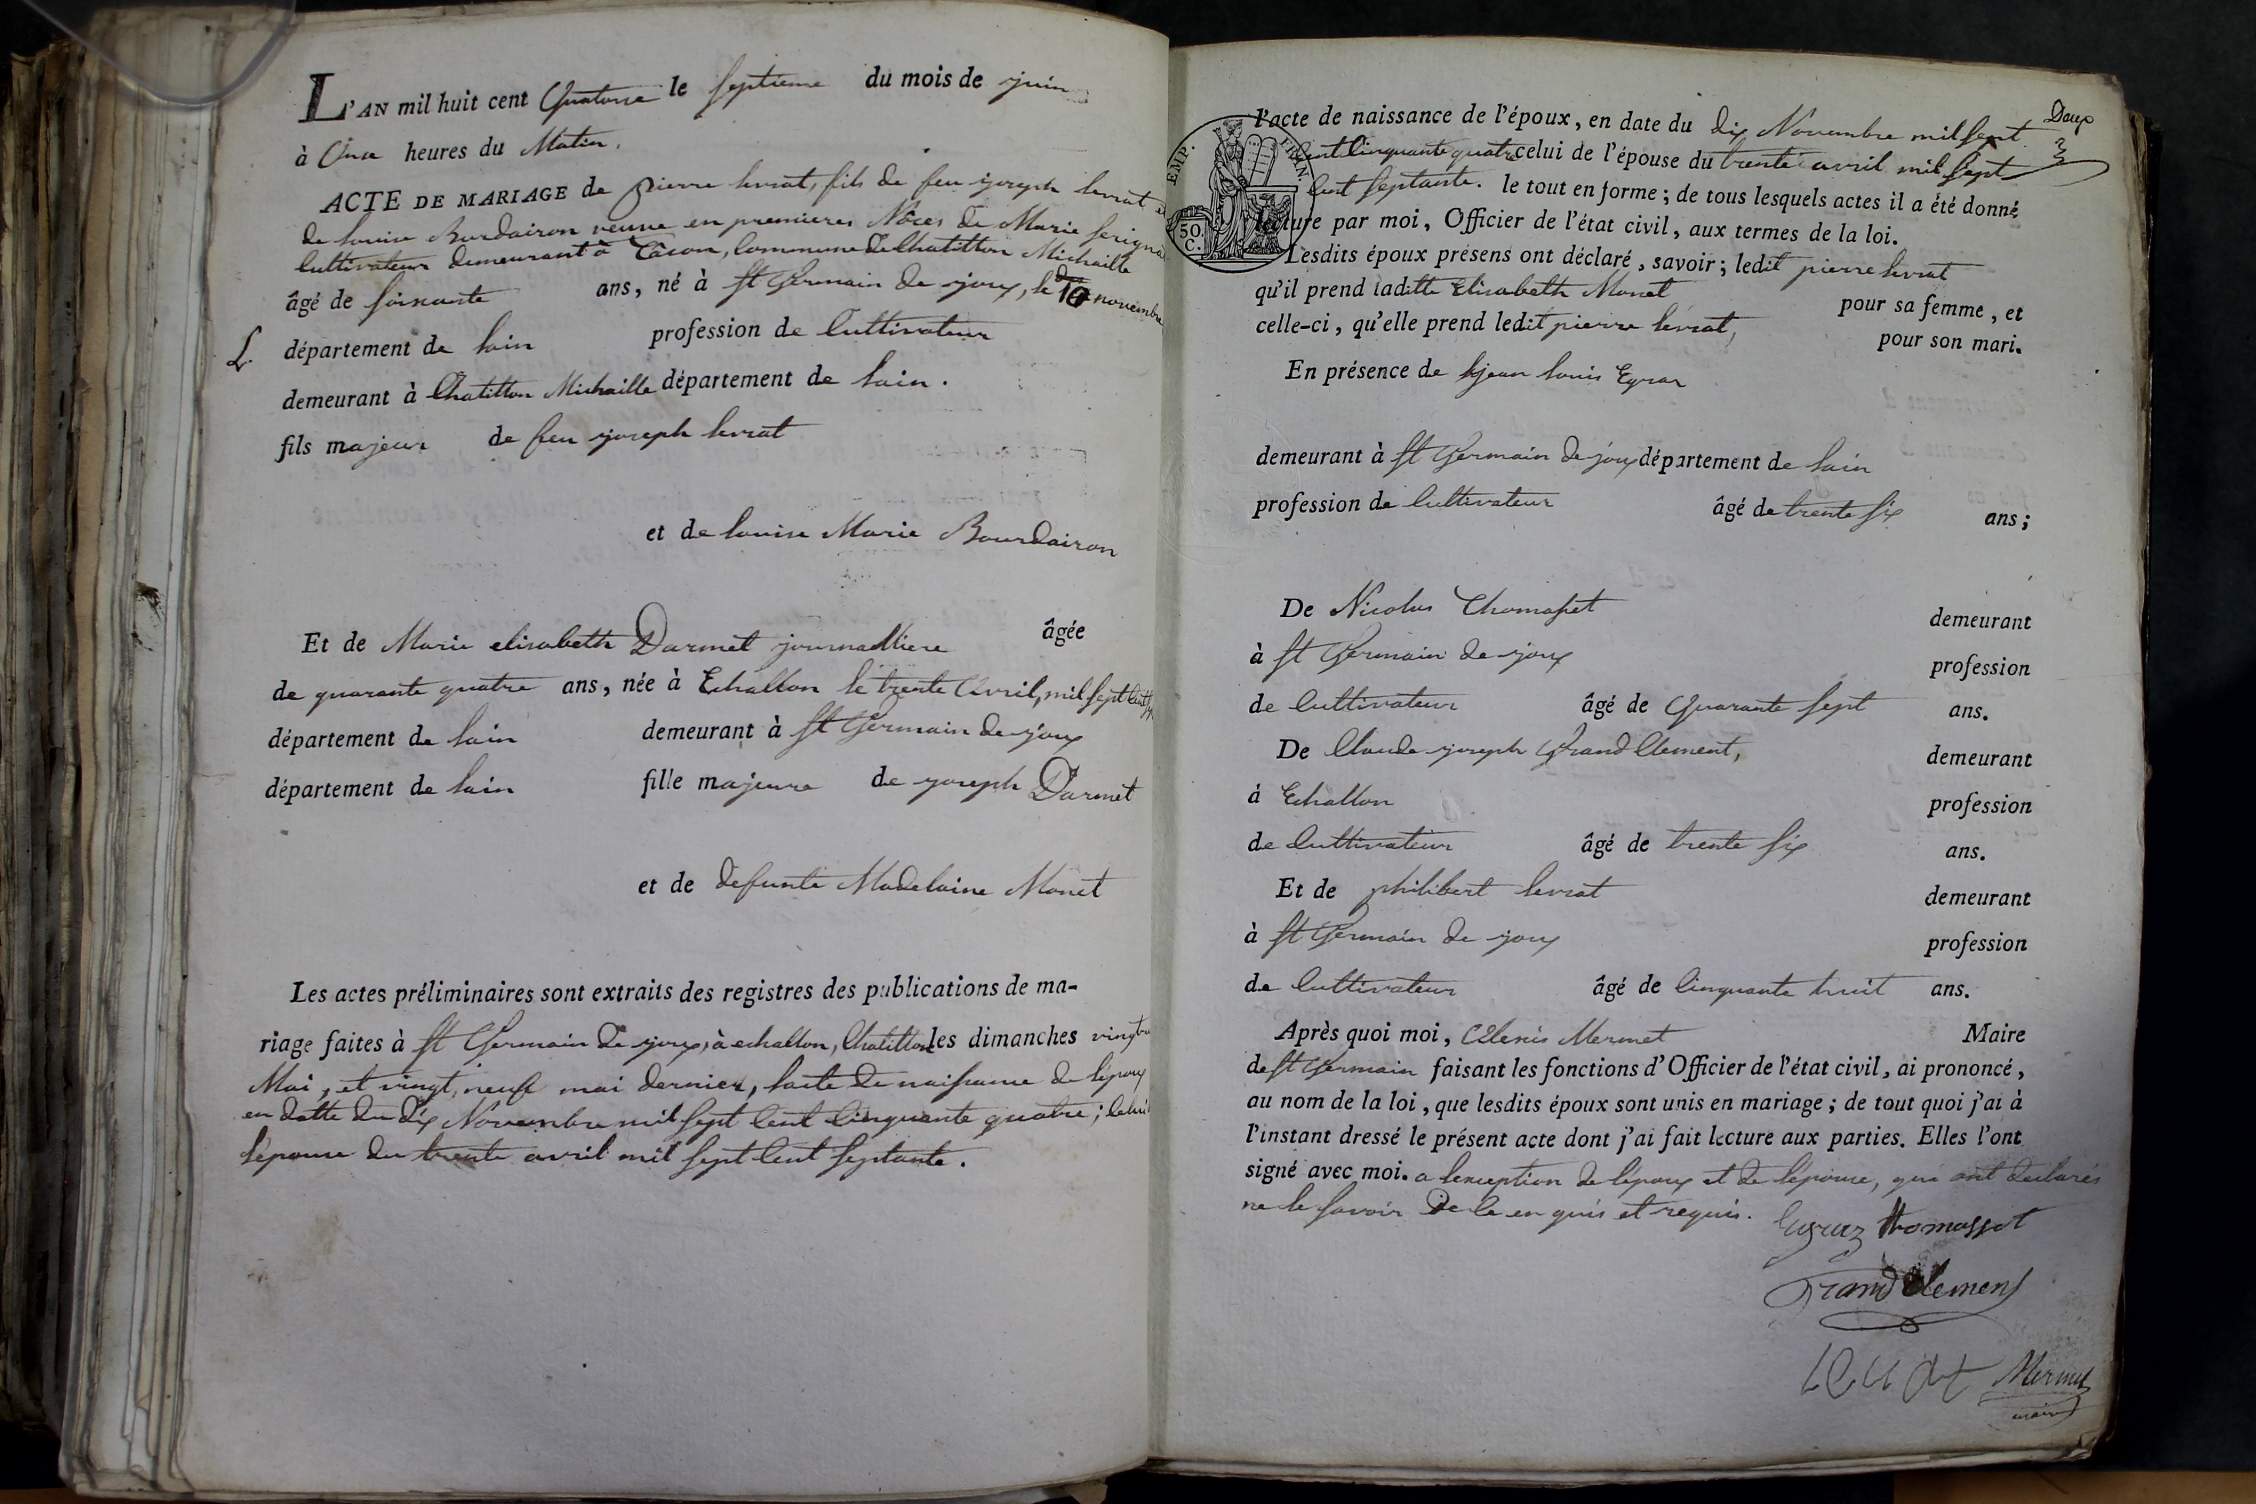 L'AN mil huit cent Quatorze le septieme du mois de juin
à Onze heures du Matin.
ACTE DE MARIAGE de pierre levrat, fils de feu joseph levrat et
de louise Burdairon veuve en premieres Nôces de Marie
Cultivateur demeurant à Tâcon, Commune de Chatillon Michaille
âgé de soixante ans, né à st Germain de joux, le 10 novembre
L. département de lain profession de Cultivateur
demeurant à Chatillon Michaille département de lain.
fils majeur de feu joseph levrat
et de louise Marie Bourdairon
Et de Marie elisabeth Darmet journalliere âgée
de quarante quatre ans, née à Echallon le trente Avril, mil sept Cent
département de lain demeurant à st Germain de joux
département de lain fille majeure de joseph Darmet
et de defunte Madelaine Monet
Les actes préliminaires sont extraits des registres des publications de ma-
riage faites à st Germain de joux, à echallon, Chatillon les dimanches
Mai, et vingt, neuf mai dernier, lacte de naissance de lépoux
en datte du dix Novembre mil sept Cent Cinquante quatre; Celui
lépouse du trente avril mil sept Cent septante.
Deux
l'acte de naissance de l'époux, en date du dix Novembre mil sept
Cent Cinquante quatre celui de l'épouse du trente avril mil sept
Cent septante. le tout en forme; de tous lesquels actes il a été donné
lecture par moi, Officier de l'état civil, aux termes de la loi.
EMP. FRAN.
50.
C.
Lesdits époux présens ont déclaré, savoir; ledit pierre levrat
qu'il prend laditte Elisabeth Monet pour sa femme, et
celle-ci, qu'elle prend ledit pierre levrat, pour son mari.
En présence de jean louis Egraz
demeurant à st Germain de joux département de lain
profession de Cultivateur âgé de trente six ans;
De Nicolas Thomasset demeurant
à st Germain de joux profession
de Cultivateur âgé de Quarante sept ans.
De Claude joseph Grand Clement, demeurant
à Echallon profession
de Cultivateur âgé de trente six ans.
Et de philibert levrat demeurant
à st Germain de joux profession
de Cultivateur âgé de Cinquante huit ans.
Après quoi moi, Alexis Mermet Maire
de st Germain faisant les fonctions d'Officier de l'état civil, ai prononcé,
au nom de la loi, que lesdits époux sont unis en mariage; de tout quoi j'ai à
l'instant dressé le présent acte dont j'ai fait lecture aux parties. Elles l'ont
signé avec moi. a lexception de lépoux et de lépouse, qui ont declarés
ne le savoir de ce en quis et requis.
Egraz thomasset
Grand Clement
levrat Mermet
maire